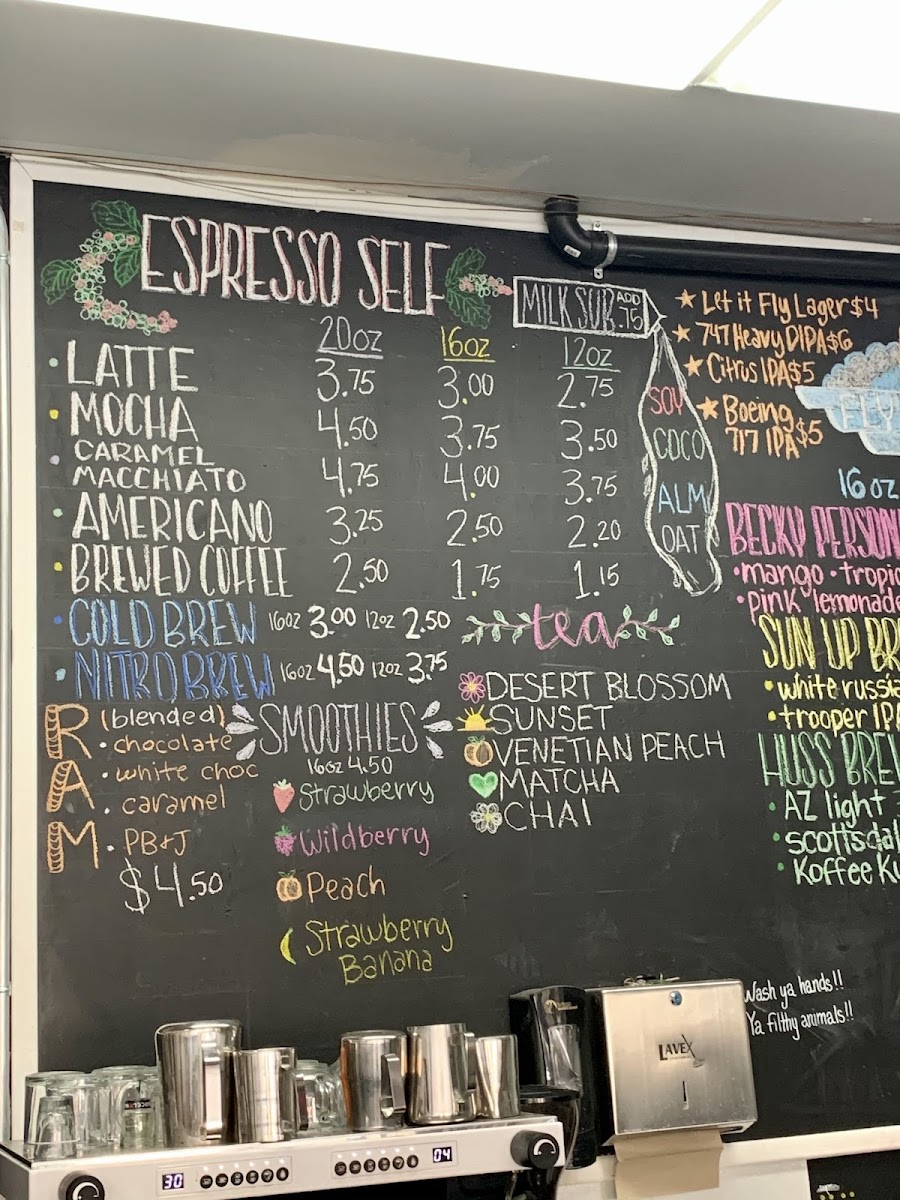 ESPRESSO SELF
20oz 16oz 12oz
LATTE 3.75 3.00 2.75
MOCHA 4.50 3.75 3.50
CARAMEL
MACCHIATO 4.75 4.00 3.75
AMERICANO 3.25 2.50 2.20
BREWED COFFEE 2.50 1.75 1.15
COLD BREW 16oz 3.00 12oz 2.50
NITRO BREW 16oz 4.50 12oz 3.75
RAM
(blended)
chocolate
white choc
caramel
PB&J
$4.50
SMOOTHIES
16oz 4.50
Strawberry
Wildberry
Peach
Strawberry
Banana
MILK SUB ADD .75
SOY
COCO
ALM
OAT
tea
DESERT BLOSSOM
SUNSET
VENETIAN PEACH
MATCHA
CHAI
Let it Fly Lager $4
747 Heavy DIPA $6
Citrus IPA $5
Boeing
717 IPA $5
FLY
16oz
BECKY PERSON
mango • tropic
pink lemonade
SUN UP BR
white russia
trooper IPA
HUSS BRE
AZ light
scottsdal
Koffee Ku
Wash ya hands!!
Ya filthy animals!!
LAVEX
30
04